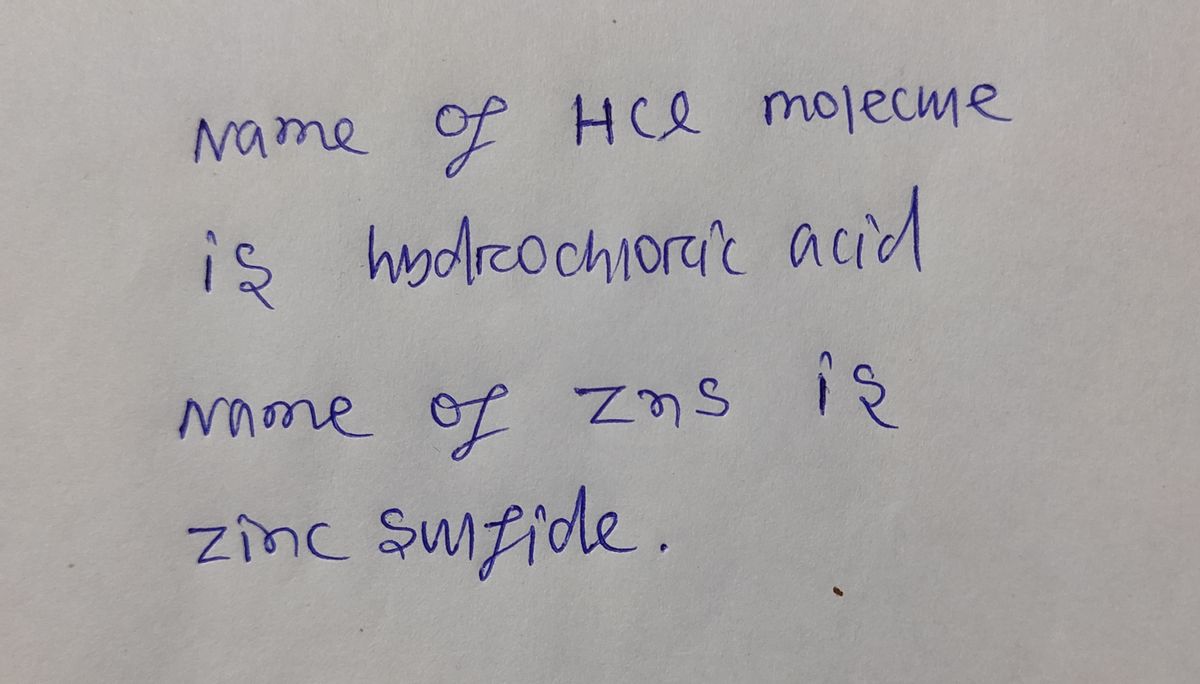 Name of HCl molecule
is hydrochloric acid
Name of ZnS is
zinc sulfide.